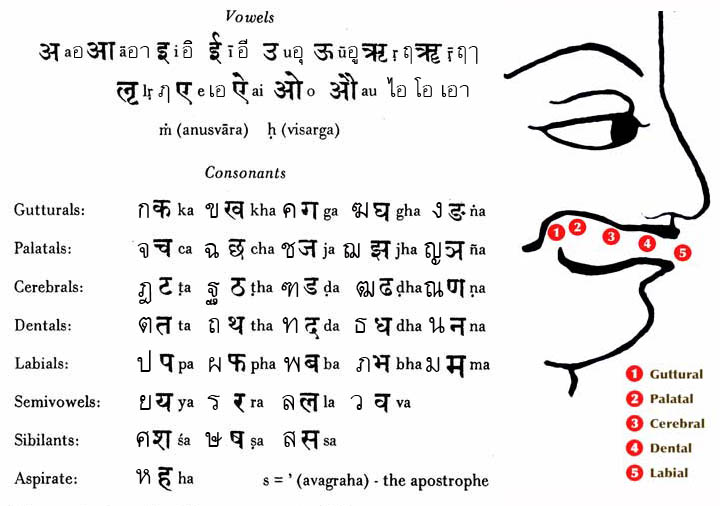 Vowels
अ a อ आ ā อา इ i อิ ई ī อี उ u อุ ऊ ū อู ऋ ṛ ฤ ॠ ṝ ฤา
लृ lṛ ฦ ए e เอ ऐ ai ओ o औ au ไอ โอ เอา
ṁ (anusvāra) ḥ (visarga)
Consonants
Gutturals: ก क ka ข ख kha ค ग ga ฆ घ gha ง ङ ṅa
Palatals: จ च ca ฉ छ cha ช ज ja ฌ झ jha ญ ञ ña
Cerebrals: ฏ ट ṭa ฐ ठ ṭha ฑ ड ḍa ฒ ढ ḍha ณ ण ṇa
Dentals: ต त ta ถ थ tha ท द da ธ ध dha น न na
Labials: ป प pa ผ फ pha พ ब ba ภ भ bha ม म ma
Semivowels: ย य ya ร र ra ล ल la ว व va
Sibilants: ศ श śa ษ ष ṣa ส स sa
Aspirate: ห ह ha s = ’ (avagraha) - the apostrophe
1 2 3 4 5
1 Guttural
2 Palatal
3 Cerebral
4 Dental
5 Labial